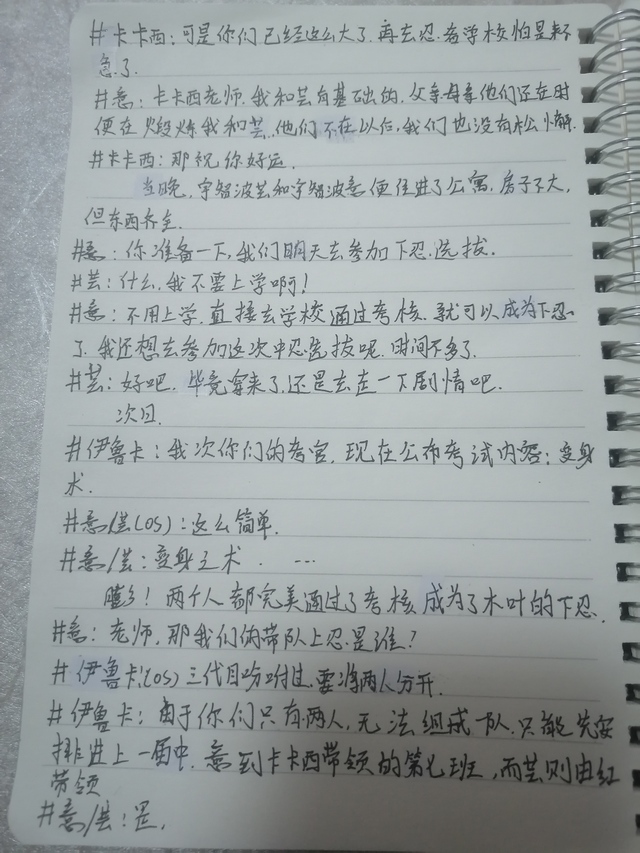 #卡卡西：可是你们已经这么大了.再去忍者学校怕是来不
急了.
#意：卡卡西老师.我和芸有基础的,父亲母亲他们还在时
便在煅炼我和芸.他们不在以后,我们也没有松懈.
#卡卡西：那祝你好运.
当晚,宇智波芸和宇智波意便住进了公寓,房子不大,
但东西齐全.
#意：你准备一下,我们明天去参加下忍选拔.
#芸：什么,我不要上学啊!
#意：不用上学.直接去学校通过考核.就可以成为下忍
了.我还想去参加这次中忍选拔呢.时间不多了.
#芸：好吧.毕竟拿来了.还是去走一下剧情吧.
次日.
#伊鲁卡：我次你们的考官,现在公布考试内容：变身
术.
#意/芸(OS)：这么简单.
#意/芸：变身之术. ...
两个人都完美通过了考核.成为了木叶的下忍.
#意：老师,那我们的带队上忍是谁?
#伊鲁卡(OS)三代目吩咐过.要将两人分开.
#伊鲁卡：由于你们只有两人,无法组成一队.只能先安
排进上一届中.意到卡卡西带领的第七班,而芸则由红
带领
#意/芸：是.